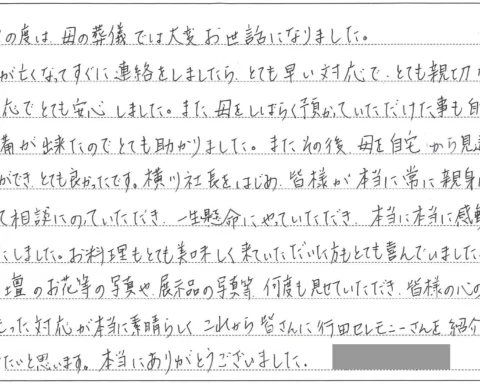 の度は、母の葬儀では大変お世話になりました。
が亡くなってすぐに連絡をしましたら、とても早い対応で、とても親切な
応でとても安心しました。また母をしばらく預かっていただけた事も自
備が出来たのでとても助かりました。またその後、母を自宅から見送
ができ、とても良かったです。横川社長をはじめ、皆様が本当に常に親身に
て相談にのっていただき、一生懸命にやっていただき、本当に本当に感動
にしました。お料理もとても美味しく来ていただいた方もとても喜んでいました。
壇のお花等の写真や、展示品の写真等、何度も見せていただき、皆様の心の
もった対応が本当に素晴らしく、これから皆さんに行田セレモニーさんを紹介
たいと思います。本当にありがとうございました。